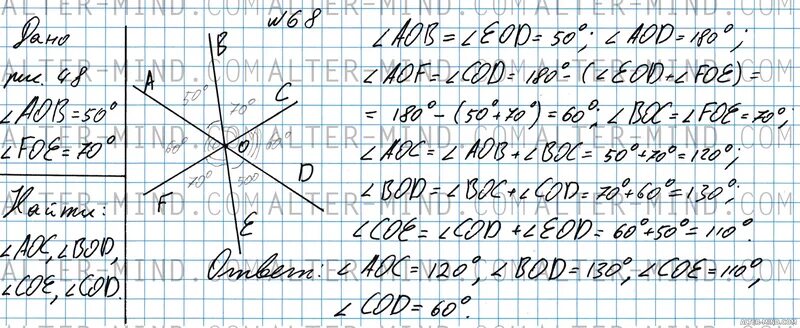 №68
Дано
рис. 48
∠AOB=50°
∠FOE=70°
Найти:
∠AOC, ∠BOD,
∠COE, ∠COD.
B
A
50°
70°
C
60°
O
60°
70°
500
D
F
E
∠AOB = ∠EOD = 50°; ∠AOD = 180°;
∠AOF = ∠COD = 180° - (∠EOD + ∠FOE) =
= 180° - (50° + 70°) = 60°; ∠BOC = ∠FOE = 70°;
∠AOC = ∠AOB + ∠BOC = 50° + 70° = 120°;
∠BOD = ∠BOC + ∠COD = 70° + 60° = 130°;
∠COE = ∠COD + ∠EOD = 60° + 50° = 110°.
Ответ: ∠AOC = 120°, ∠BOD = 130°, ∠COE = 110°,
∠COD = 60°.
ALTER-MIND.COM